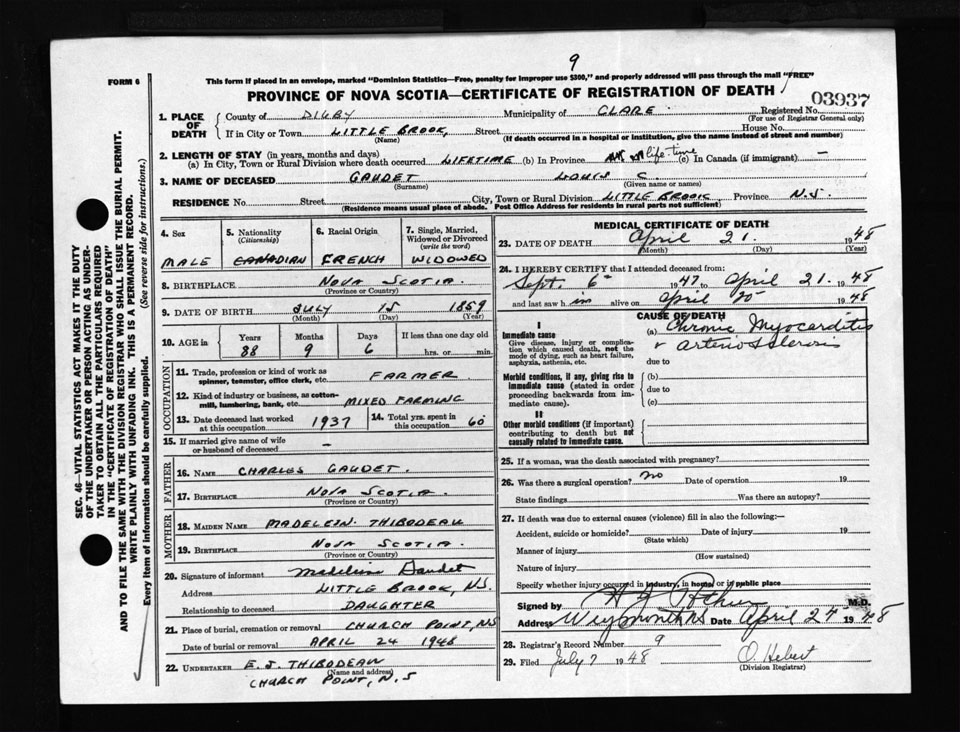 9
FORM 6
This form if placed in an envelope, marked "Dominion Statistics—Free, penalty for improper use $300," and properly addressed will pass through the mail "FREE"
PROVINCE OF NOVA SCOTIA—CERTIFICATE OF REGISTRATION OF DEATH
03937
1. PLACE OF DEATH
County of DIGBY Municipality of CLARE. Registered No.
(For use of Registrar General only)
If in City or Town LITTLE BROOK, Street House No.
(Name) (If death occurred in a hospital or institution, give the name instead of street and number)
2. LENGTH OF STAY (in years, months and days)
(a) In City, Town or Rural Division where death occurred LIFETIME (b) In Province life-time (c) In Canada (if immigrant) —
3. NAME OF DECEASED GAUDET LOUIS C.
(Surname) (Given name or names)
RESIDENCE No. Street City, Town or Rural Division LITTLE BROOK Province N.S.
(Residence means usual place of abode. Post Office Address for residents in rural parts not sufficient)
4. Sex
MALE
5. Nationality
(Citizenship)
CANADIAN
6. Racial Origin
FRENCH
7. Single, Married, Widowed or Divorced
(write the word)
WIDOWED
8. BIRTHPLACE NOVA SCOTIA.
(Province or Country)
9. DATE OF BIRTH JULY 15 1859
(Month) (Day) (Year)
10. AGE in
Years Months Days If less than one day old
88 9 6 hrs. or min.
OCCUPATION
11. Trade, profession or kind of work as spinner, teamster, office clerk, etc. FARMER.
12. Kind of industry or business, as cotton-mill, lumbering, bank, etc. MIXED FARMING
13. Date deceased last worked at this occupation 1937
14. Total yrs. spent in this occupation 60
15. If married give name of wife or husband of deceased —
FATHER
16. NAME CHARLES GAUDET.
17. BIRTHPLACE NOVA SCOTIA.
(Province or Country)
MOTHER
18. MAIDEN NAME MADELEIN. THIBODEAU
19. BIRTHPLACE NOVA SCOTIA.
(Province or Country)
20. Signature of informant Madeleine Gaudet
Address LITTLE BROOK, N.S.
Relationship to deceased DAUGHTER
21. Place of burial, cremation or removal CHURCH POINT, N.S
Date of burial or removal APRIL 24 1948
22. UNDERTAKER E. J. THIBODEAU
(Name and address)
CHURCH POINT, N.S
MEDICAL CERTIFICATE OF DEATH
23. DATE OF DEATH April 21. 1948
(Month) (Day) (Year)
24. I HEREBY CERTIFY that I attended deceased from:
Sept. 6 1947 to April 21. 1948
and last saw him alive on April 20 1948
CAUSE OF DEATH
I
Immediate cause
Give disease, injury or complication which caused death, not the mode of dying, such as heart failure, asphyxia, asthenia, etc.
(a) Chronic Myocarditis
+ arterio Sclerosis
due to
Morbid conditions, if any, giving rise to immediate cause (stated in order proceeding backwards from immediate cause).
(b)
due to
(c)
II
Other morbid conditions (if important) contributing to death but not causally related to immediate cause.
25. If a woman, was the death associated with pregnancy?
26. Was there a surgical operation? no Date of operation 19
State findings Was there an autopsy?
27. If death was due to external causes (violence) fill in also the following:—
Accident, suicide or homicide? Date of injury 19
(State which)
Manner of injury
(How sustained)
Nature of injury
Specify whether injury occurred in industry, in home or in public place
Signed by M.D.
Address Weymouth NS Date April 27 1948
28. Registrar's Record Number 9
29. Filed July 7 1948 O. Hebert
(Division Registrar)
SEC. 46—VITAL STATISTICS ACT MAKES IT THE DUTY
OF THE UNDERTAKER OR PERSON ACTING AS UNDER-
TAKER TO OBTAIN ALL THE PARTICULARS REQUIRED
IN THE "CERTIFICATE OF REGISTRATION OF DEATH"
AND TO FILE THE SAME WITH THE DIVISION REGISTRAR WHO SHALL ISSUE THE BURIAL PERMIT.
WRITE PLAINLY WITH UNFADING INK. THIS IS A PERMANENT RECORD.
Every item of information should be carefully supplied. (See reverse side for instructions.)